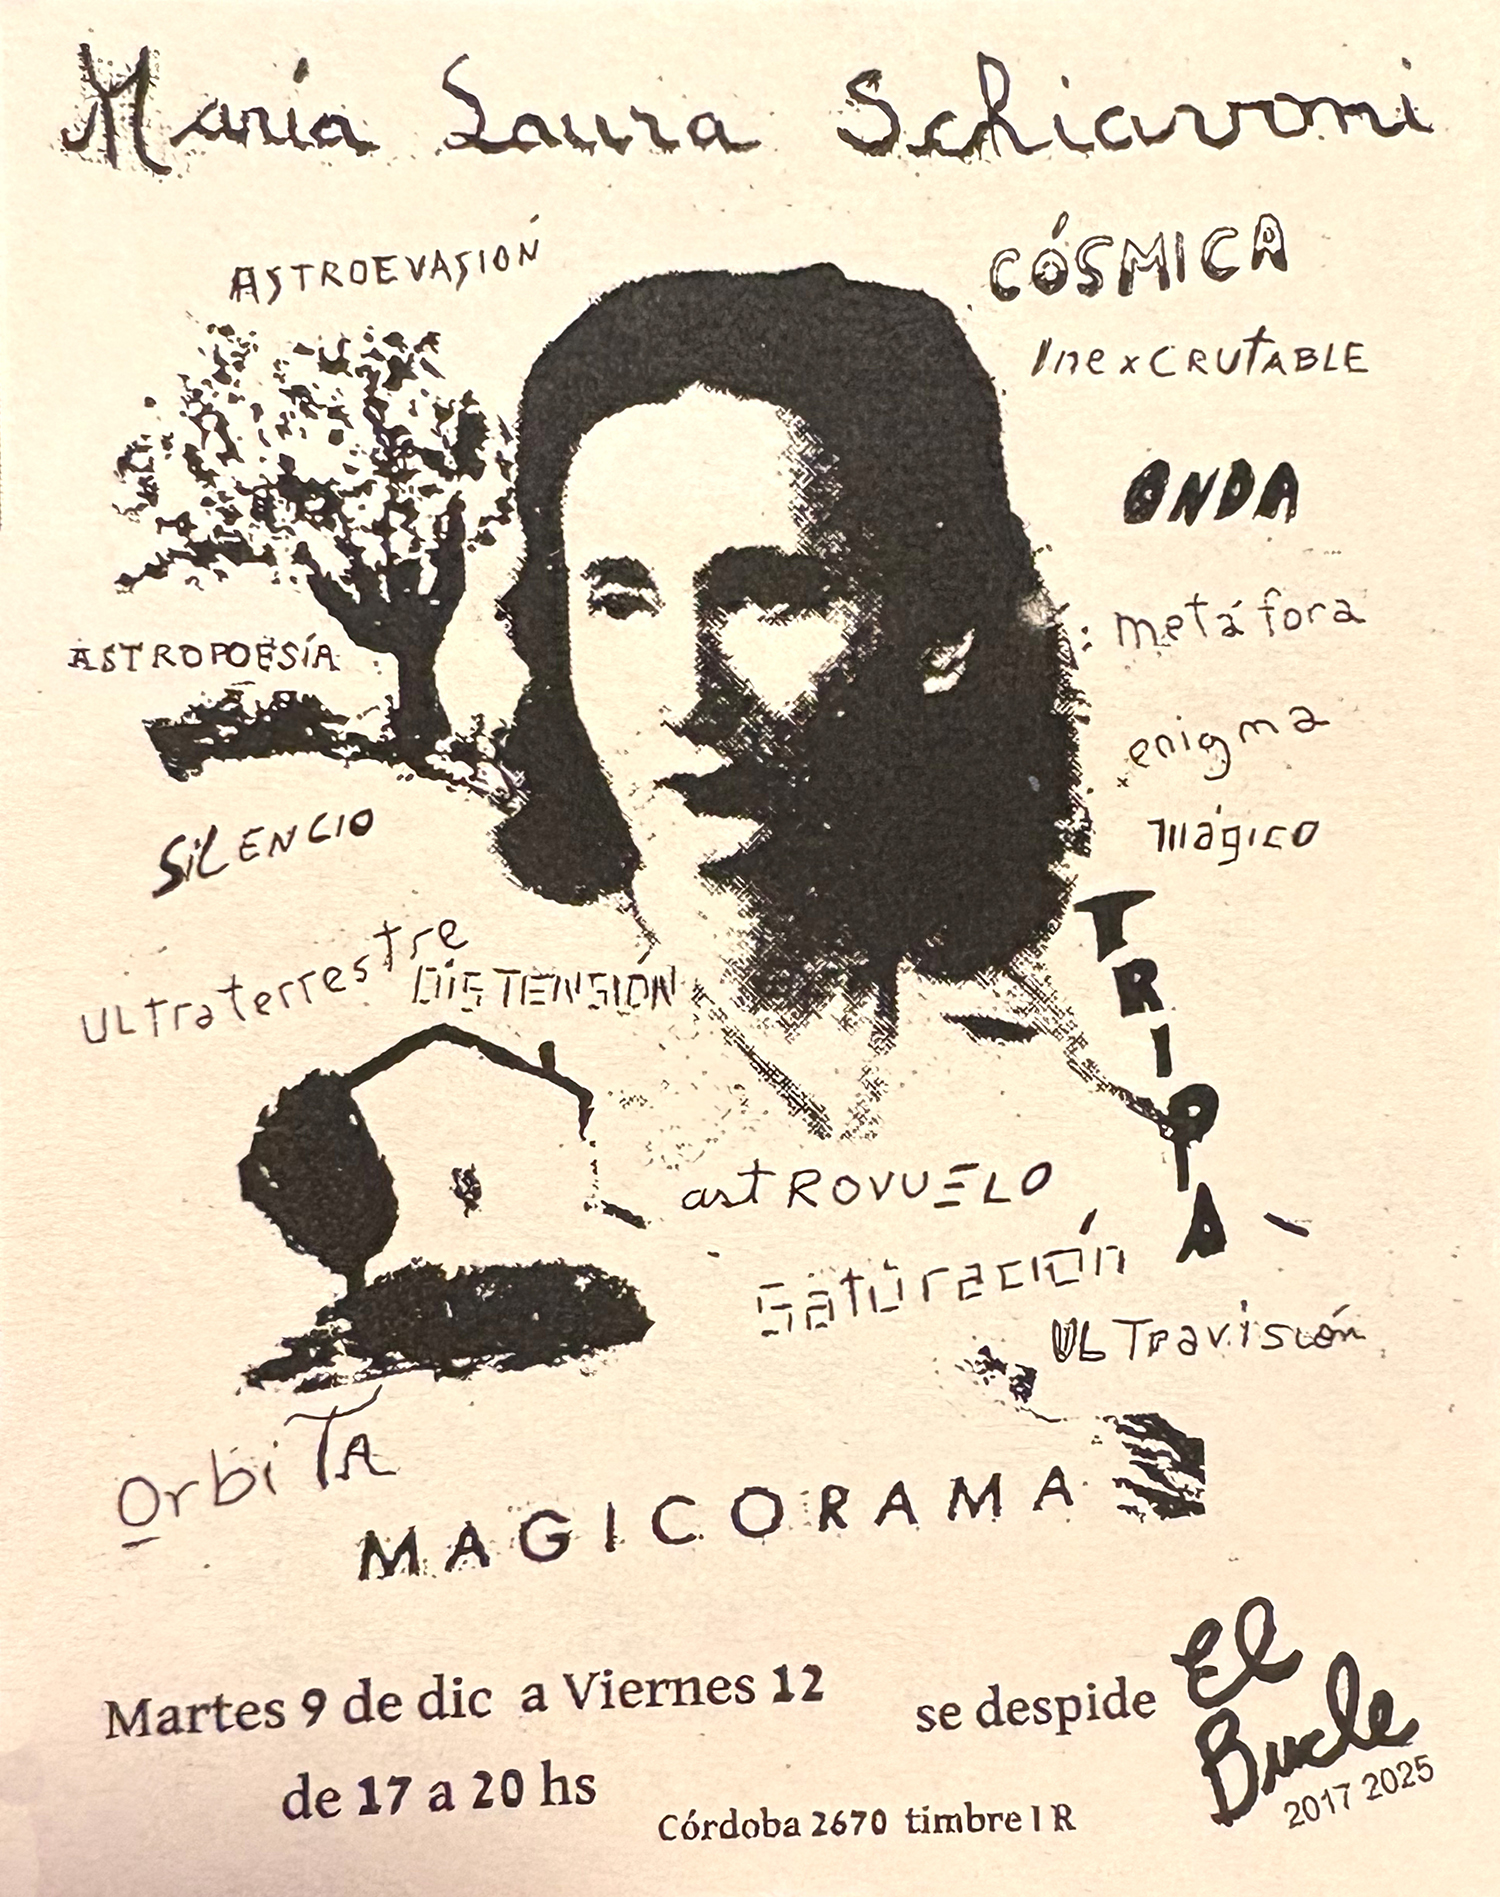 María Laura Schiavoni
ASTROEVASIÓN
CÓSMICA
InexCRUTABLE
ONDA
metáfora
ASTROPOESÍA
enigma
mágico
SILENCIO
TRIPTA
ULtraterrestre
DISTENSIÓN
astROVUELO
Saturación
ULTravisión
OrbiTA
MAGICORAMA
Martes 9 de dic a Viernes 12
de 17 a 20 hs
se despide
El
Bucle
2017 2025
Córdoba 2670 timbre 1 R